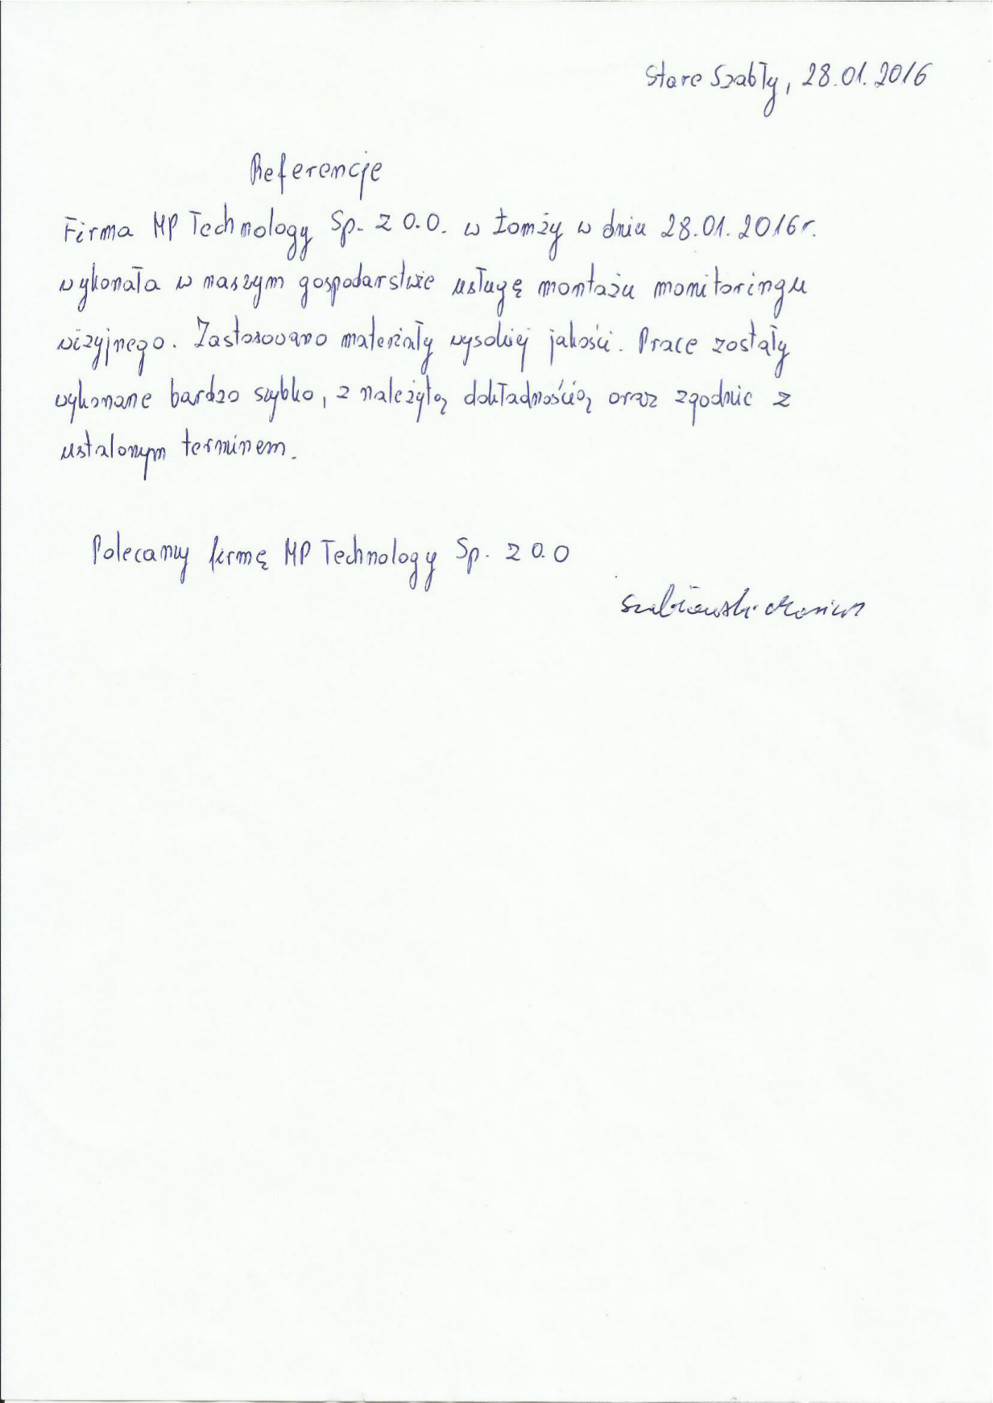 Stare Szabły, 28.01.2016
Referencje
Firma MP Technology Sp. z o.o. w Łomży w dniu 28.01.2016r.
wykonała w naszym gospodarstwie usługę montażu monitoringu
wizyjnego. Zastosowano materiały wysokiej jakości. Prace zostały
wykonane bardzo szybko, z należytą dokładnością oraz zgodnie z
ustalonym terminem.
Polecamy firmę MP Technology Sp. z o.o